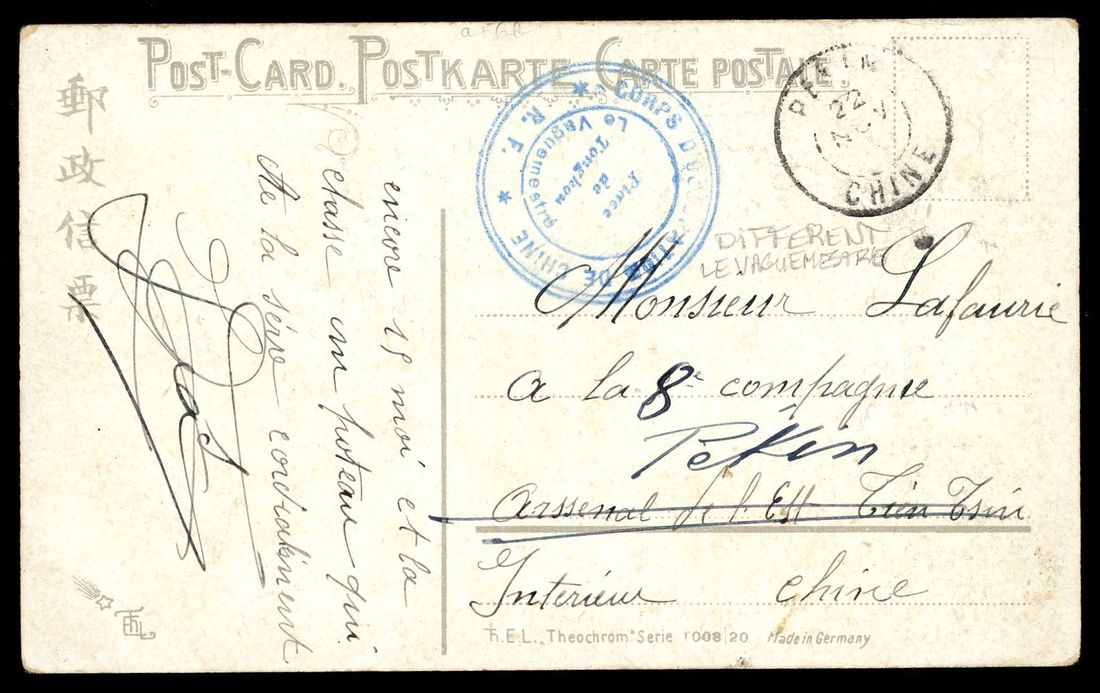 POST-CARD. POSTKARTE CARTE POSTALE.
郵政信票
CORPS D'OCCUPATION DE CHINE
★ R. F. ★
Le Vaguemestre
Place
de
Tongkou
PEKIN
22
CHINE
DIFFERENT
LE VAGUEMESTRE
encore 15 moi et la
classe un poteau qui
de la série cordialement
Monsieur Lafaurie
a la 8e compagnie
Pekin
Arssenal de l'Est Tien Tsin
Interieur chine
T.E.L. „Theochrom" Serie 1008/20 Made in Germany